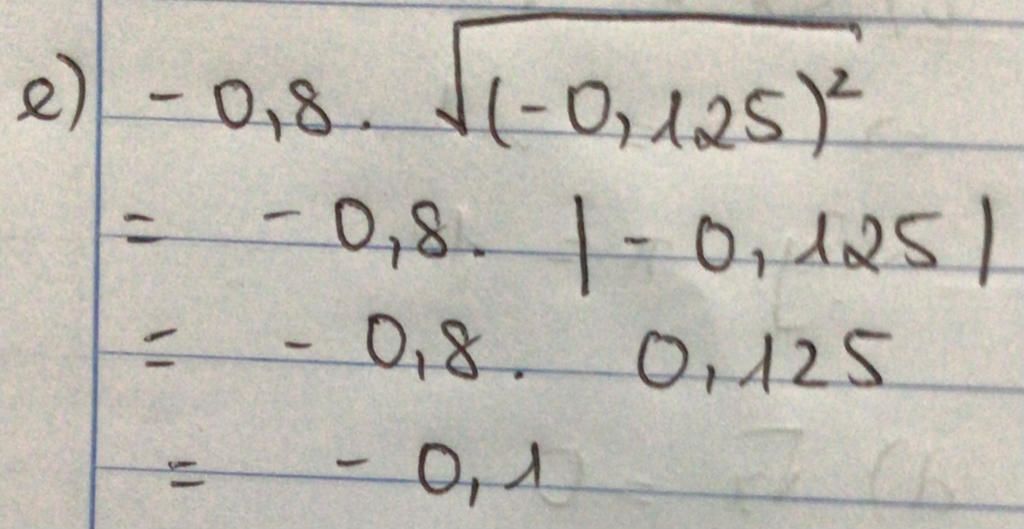 e) -0,8. √(-0,125)²
= -0,8. |-0,125|
= -0,8. 0,125
= -0,1